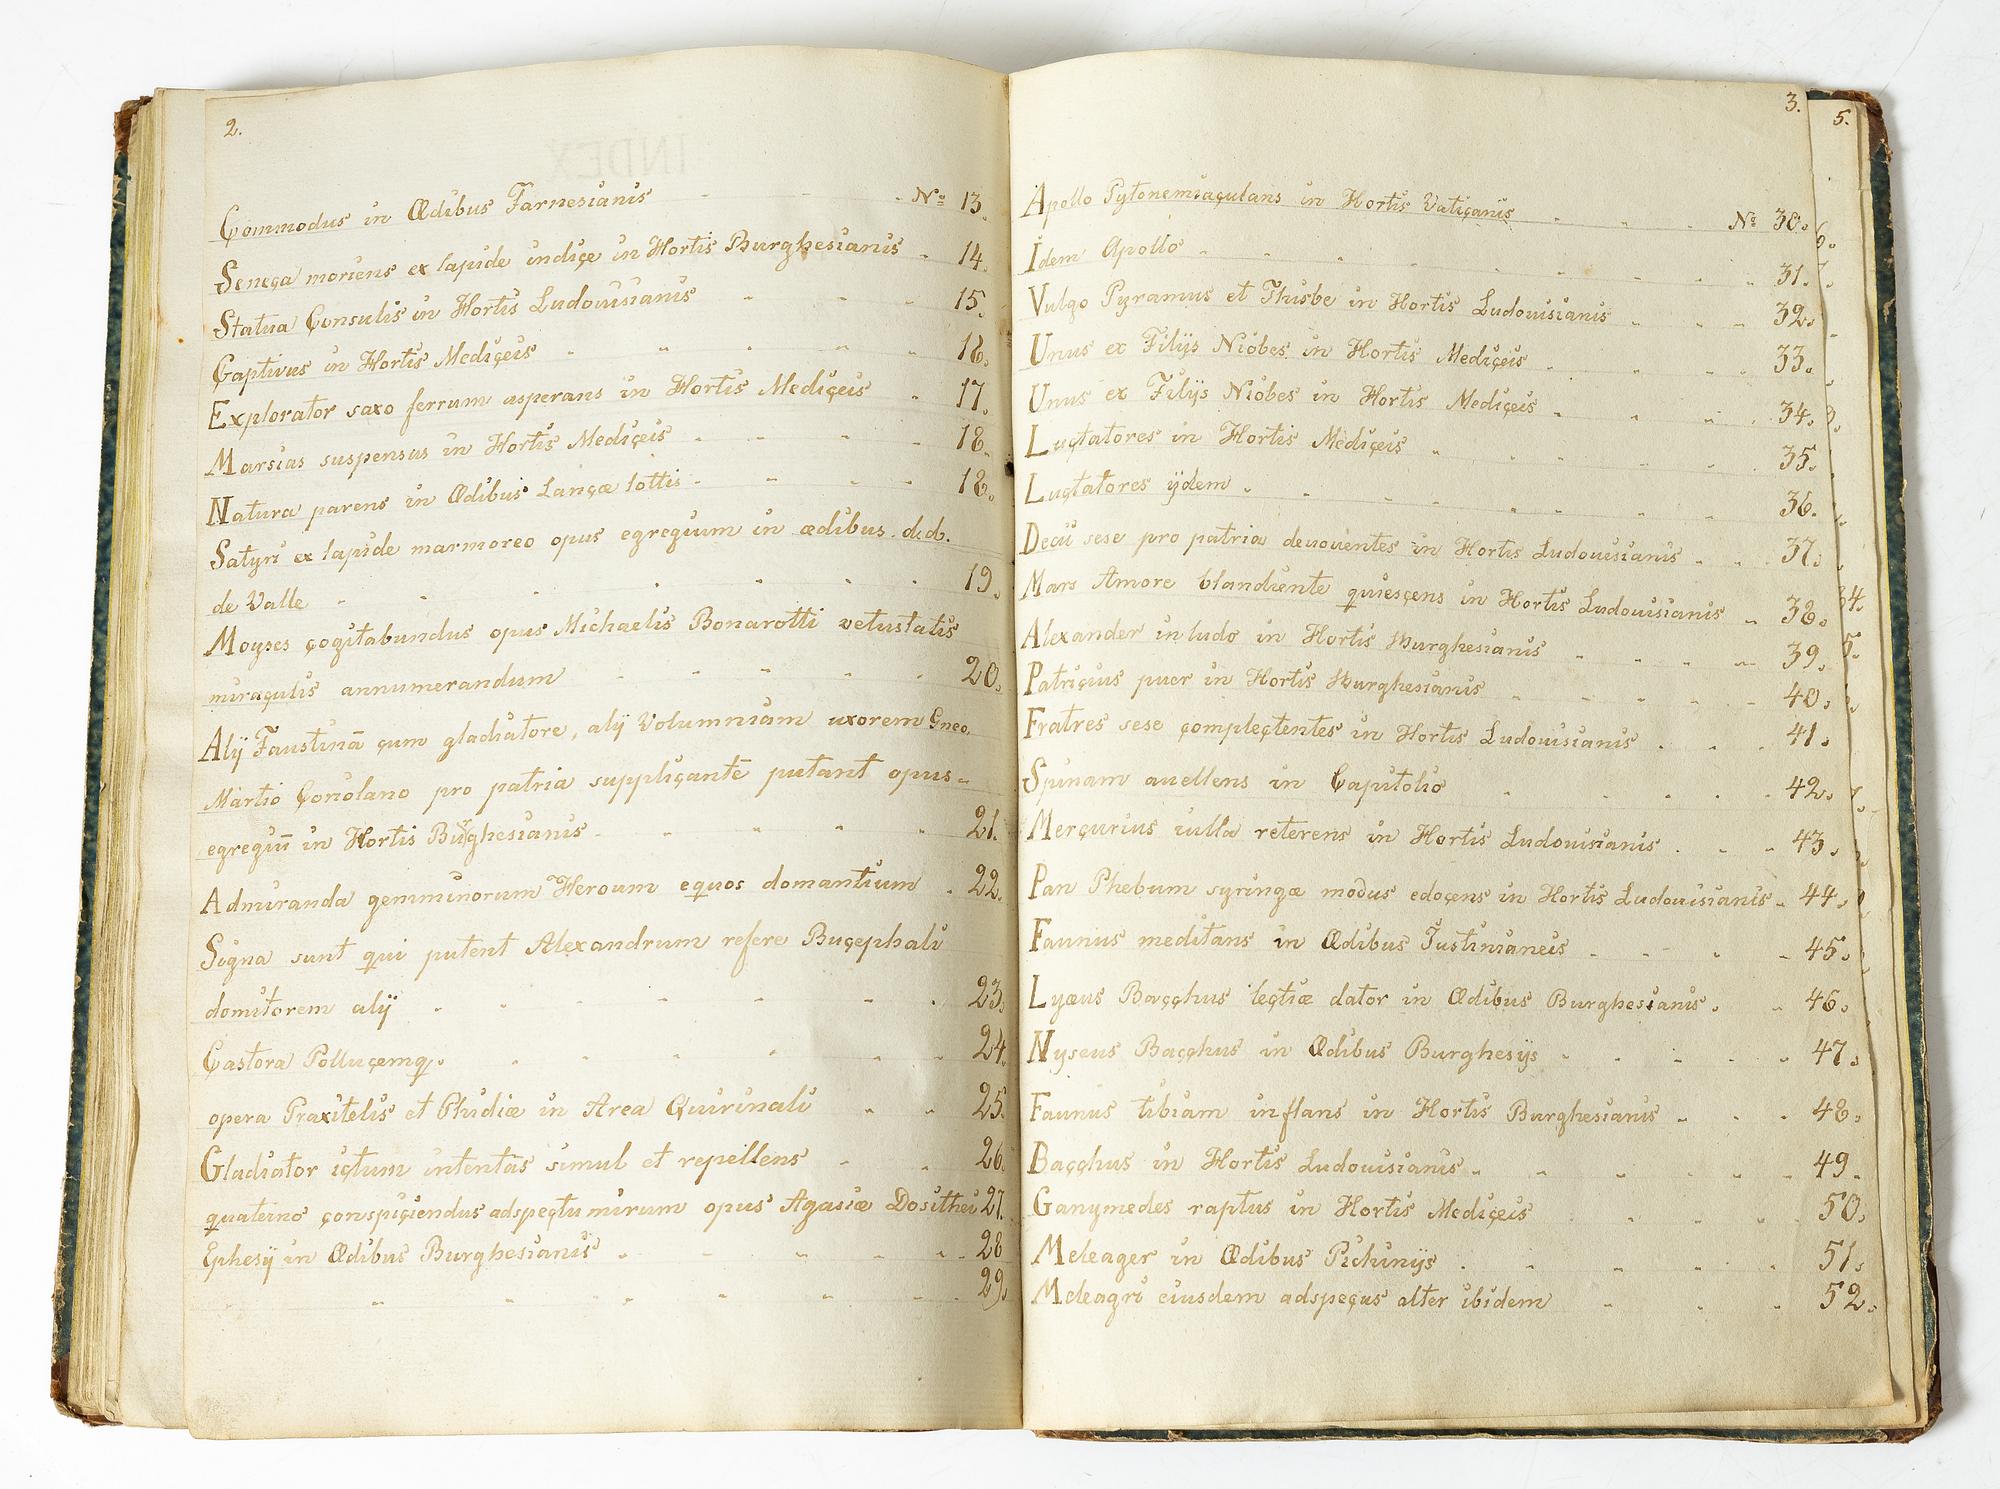 2.
INDEX
Commodus in Œdibus Farnesianis Nº 13.
Seneça moriens ex lapide indiçe in Hortis Burghesianis 14.
Statua Çonsulis in Hortis Ludouisianis 15.
Çaptivus in Hortis Mediçeis 16.
Explorator saxo ferrum asperans in Hortis Mediçeis 17.
Marsias suspensus in Hortis Mediçeis 18.
Natura parens in Œdibus Lançæ lottis 18.
Satyri ex lapide marmoreo opus egregium in ædibus d.d.
de Valle 19.
Moyses çogitabundus opus Michaelis Bonarotti vetustatis
miraçulis annumerandum 20.
Alÿ Faustinā çum gladiatore, alÿ Volumniam uxorem Gneo
Martio Çoriolano pro patria suppliçantē putant opus
egregiū in Hortis Burghesianis 21.
Admiranda gemminorum Heroum equos domantium 22.
Signa sunt qui putent Alexandrum refere Buçephali
domitorem alÿ 23.
Castora Polluçemq. 24.
opera Praxitelis et Phidiæ in Area Quirinali 25.
Gladiator içtum intentas simul et repellens 26.
quaterno çonspiçiendus adspeçtu mirum opus Agasiæ Dosithei 27.
Ephesÿ in Œdibus Burghesianis 28
29.
3.
Apollo Pytonemiaçulans in Hortis Vatiçanis Nº 30.
Idem Apollo 31.
Vulgo Pyramus et Thisbe in Hortis Ludouisianis 32.
Unus ex Filÿs Niobes in Hortis Mediçeis 33.
Unus ex Filÿs Niobes in Hortis Mediçeis 34.
Luçtatores in Hortis Mediçeis 35.
Luçtatores ÿdem 36.
Decii sese pro patria deuouentes in Hortis Ludouisianis 37.
Mars Amore blandiente quiesçens in Hortis Ludouisianis 38.
Alexander in ludo in Hortis Burghesianis 39.
Patriçius puer in Hortis Burghesianis 40.
Fratres sese çompleçtentes in Hortis Ludouisianis 41.
Spinam auellens in Capitolio 42.
Merçurius uilla reterens in Hortis Ludouisianis 43.
Pan Phebum syringæ modus edoçens in Hortis Ludouisianis 44.
Faunus meditans in Œdibus Justinianeis 45.
Lyæus Baççhus leçtiæ dator in Œdibus Burghesianis 46.
Nyseus Baççhus in Œdibus Burghesÿs 47.
Faunus tibiam inflans in Hortis Burghesianis 48.
Baççhus in Hortis Ludouisianis 49.
Ganymedes raptus in Hortis Mediçeis 50.
Meleager in Œdibus Pichinÿs 51.
Meleagri eiusdem adspeçus alter ibidem 52.
5.